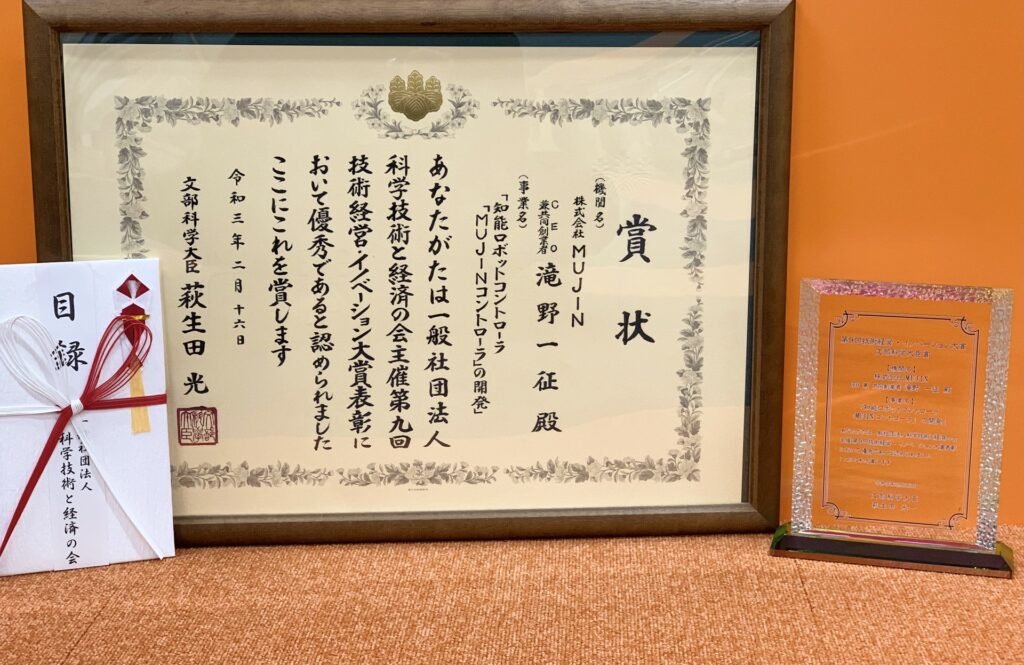 賞状
(機関名)
株式会社 MUJIN
CEO
兼共同創業者 滝野一征 殿
(事業名)
「知能ロボットコントローラ
「MUJINコントローラ」の開発」
あなたがたは一般社団法人
科学技術と経済の会主催第九回
技術経営・イノベーション大賞表彰に
おいて優秀であると認められました
ここにこれを賞します
令和三年二月十六日
文部科学大臣 萩生田 光
目録
社団法人
科学技術と経済の会
第9回技術経営・イノベーション大賞
文部科学大臣賞
【機関名】
株式会社 MUJIN
【事業名】
文部科学大臣